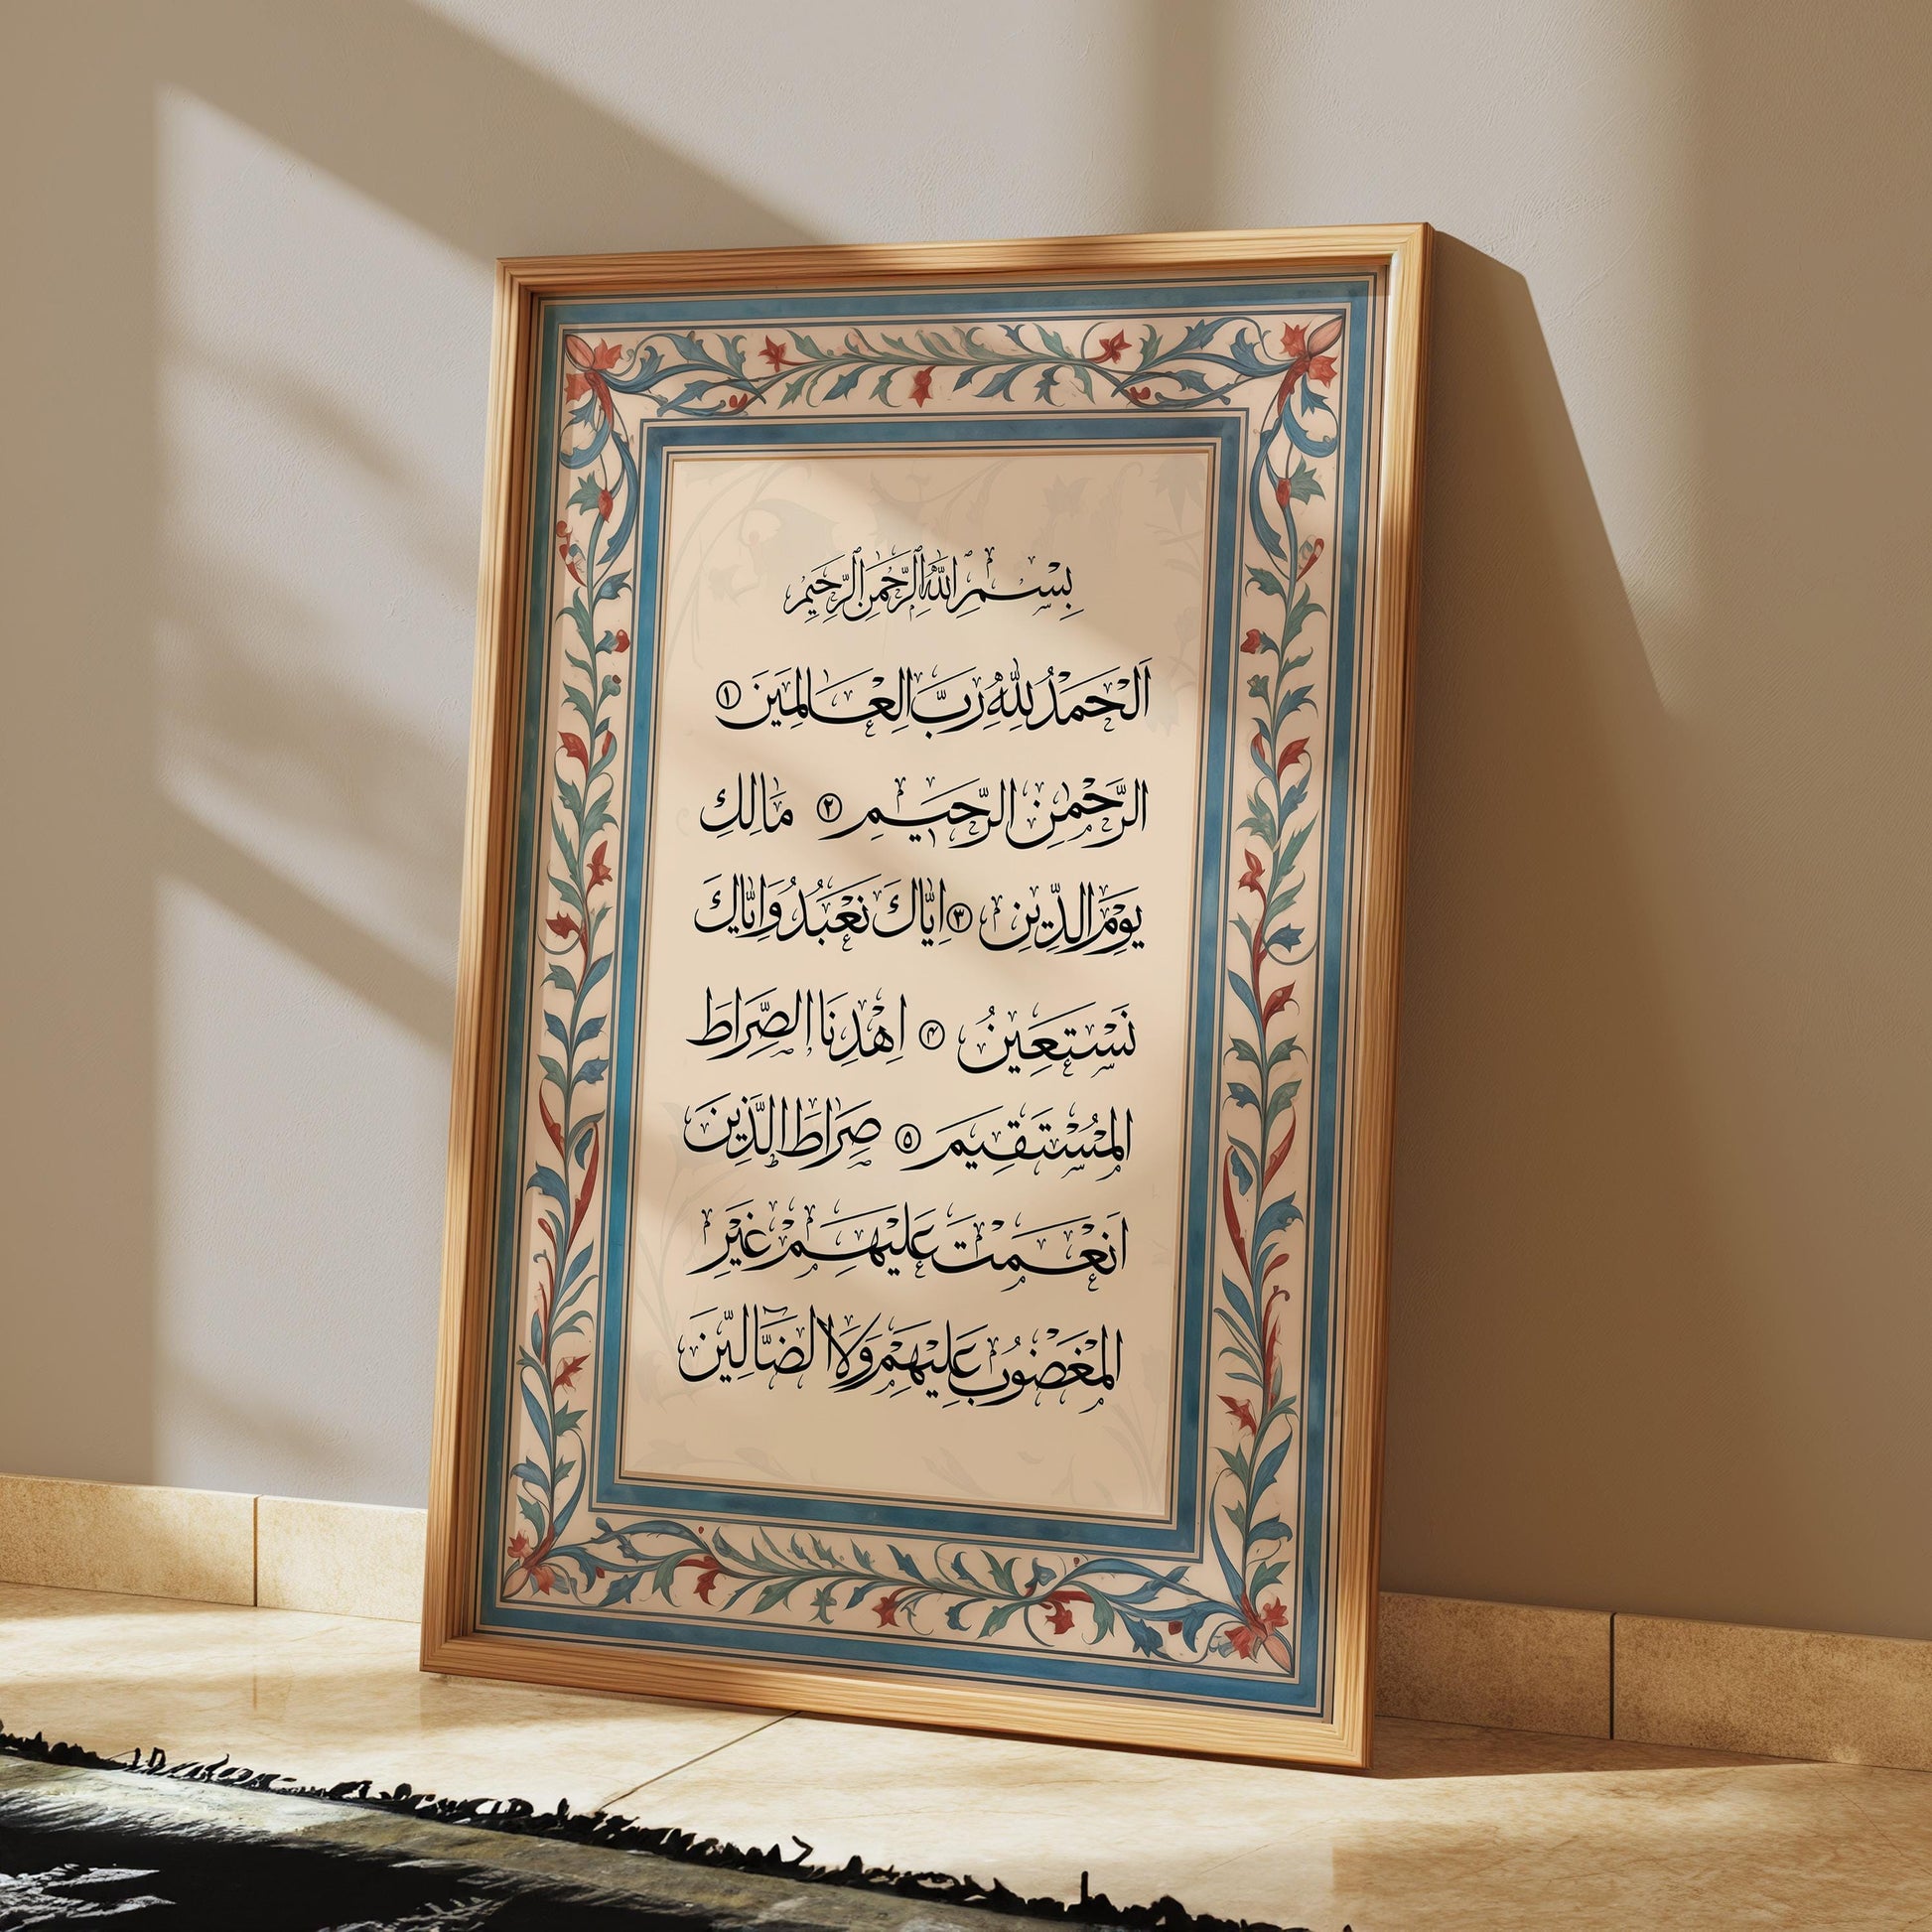 بِسْمِ اللّٰهِ الرَّحْمٰنِ الرَّحِيْمِ
اَلْحَمْدُ لِلّٰهِ رَبِّ الْعَالَمِيْنَ ١
الرَّحْمٰنِ الرَّحِيْمِ ٢ مَالِكِ
يَوْمِ الدِّيْنِ ٣ اِيَّاكَ نَعْبُدُ وَاِيَّاكَ
نَسْتَعِيْنُ ۴ اِهْدِنَا الصِّرَاطَ
الْمُسْتَقِيْمَ ٥ صِرَاطَ الَّذِيْنَ
اَنْعَمْتَ عَلَيْهِمْ غَيْرِ
الْمَغْضُوْبِ عَلَيْهِمْ وَلَا الضَّآلِّيْنَ